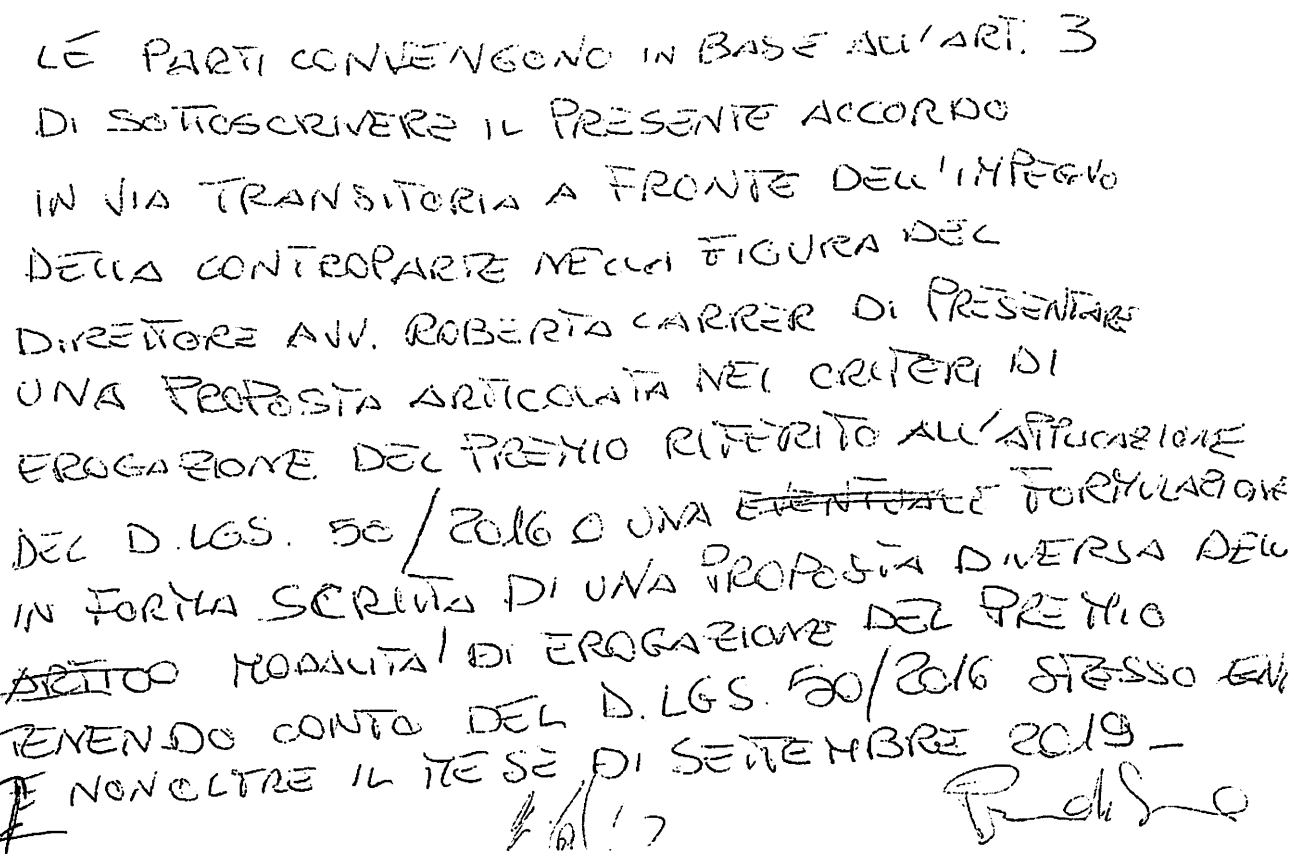 LE PARTI CONVENGONO IN BASE ALL'ART. 3
DI SOTTOSCRIVERE IL PRESENTE ACCORDO
IN VIA TRANSITORIA A FRONTE DELL'IMPEGNO
DELLA CONTROPARTE NELLA FIGURA DEL
DIRETTORE AVV. ROBERTA CARRER DI PRESENTARE
UNA PROPOSTA ARTICOLATA NEI CRITERI DI
EROGAZIONE DEL PREMIO RIFERITO ALL'APPLICAZIONE
DEL D.LGS. 50/2016 O UNA EVENTUALE FORMULAZIONE
IN FORMA SCRITTA DI UNA PROPOSTA DIVERSA DELL
MODALITA' DI EROGAZIONE DEL PREMIO
TENENDO CONTO DEL D.LGS. 50/2016 STESSO EN
E NON OLTRE IL MESE DI SETTEMBRE 2019_